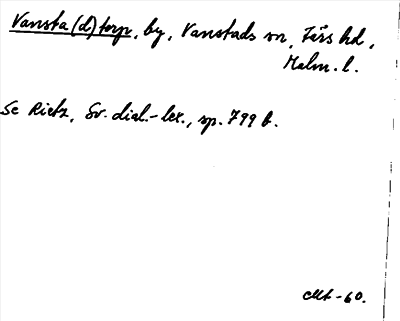 Vansta(d)torp, by, Vanstads sn, Färs hd,
Malm. l.
Se Rietz, Sv. dial.-lex., sp. 799 b.
CMt -60.